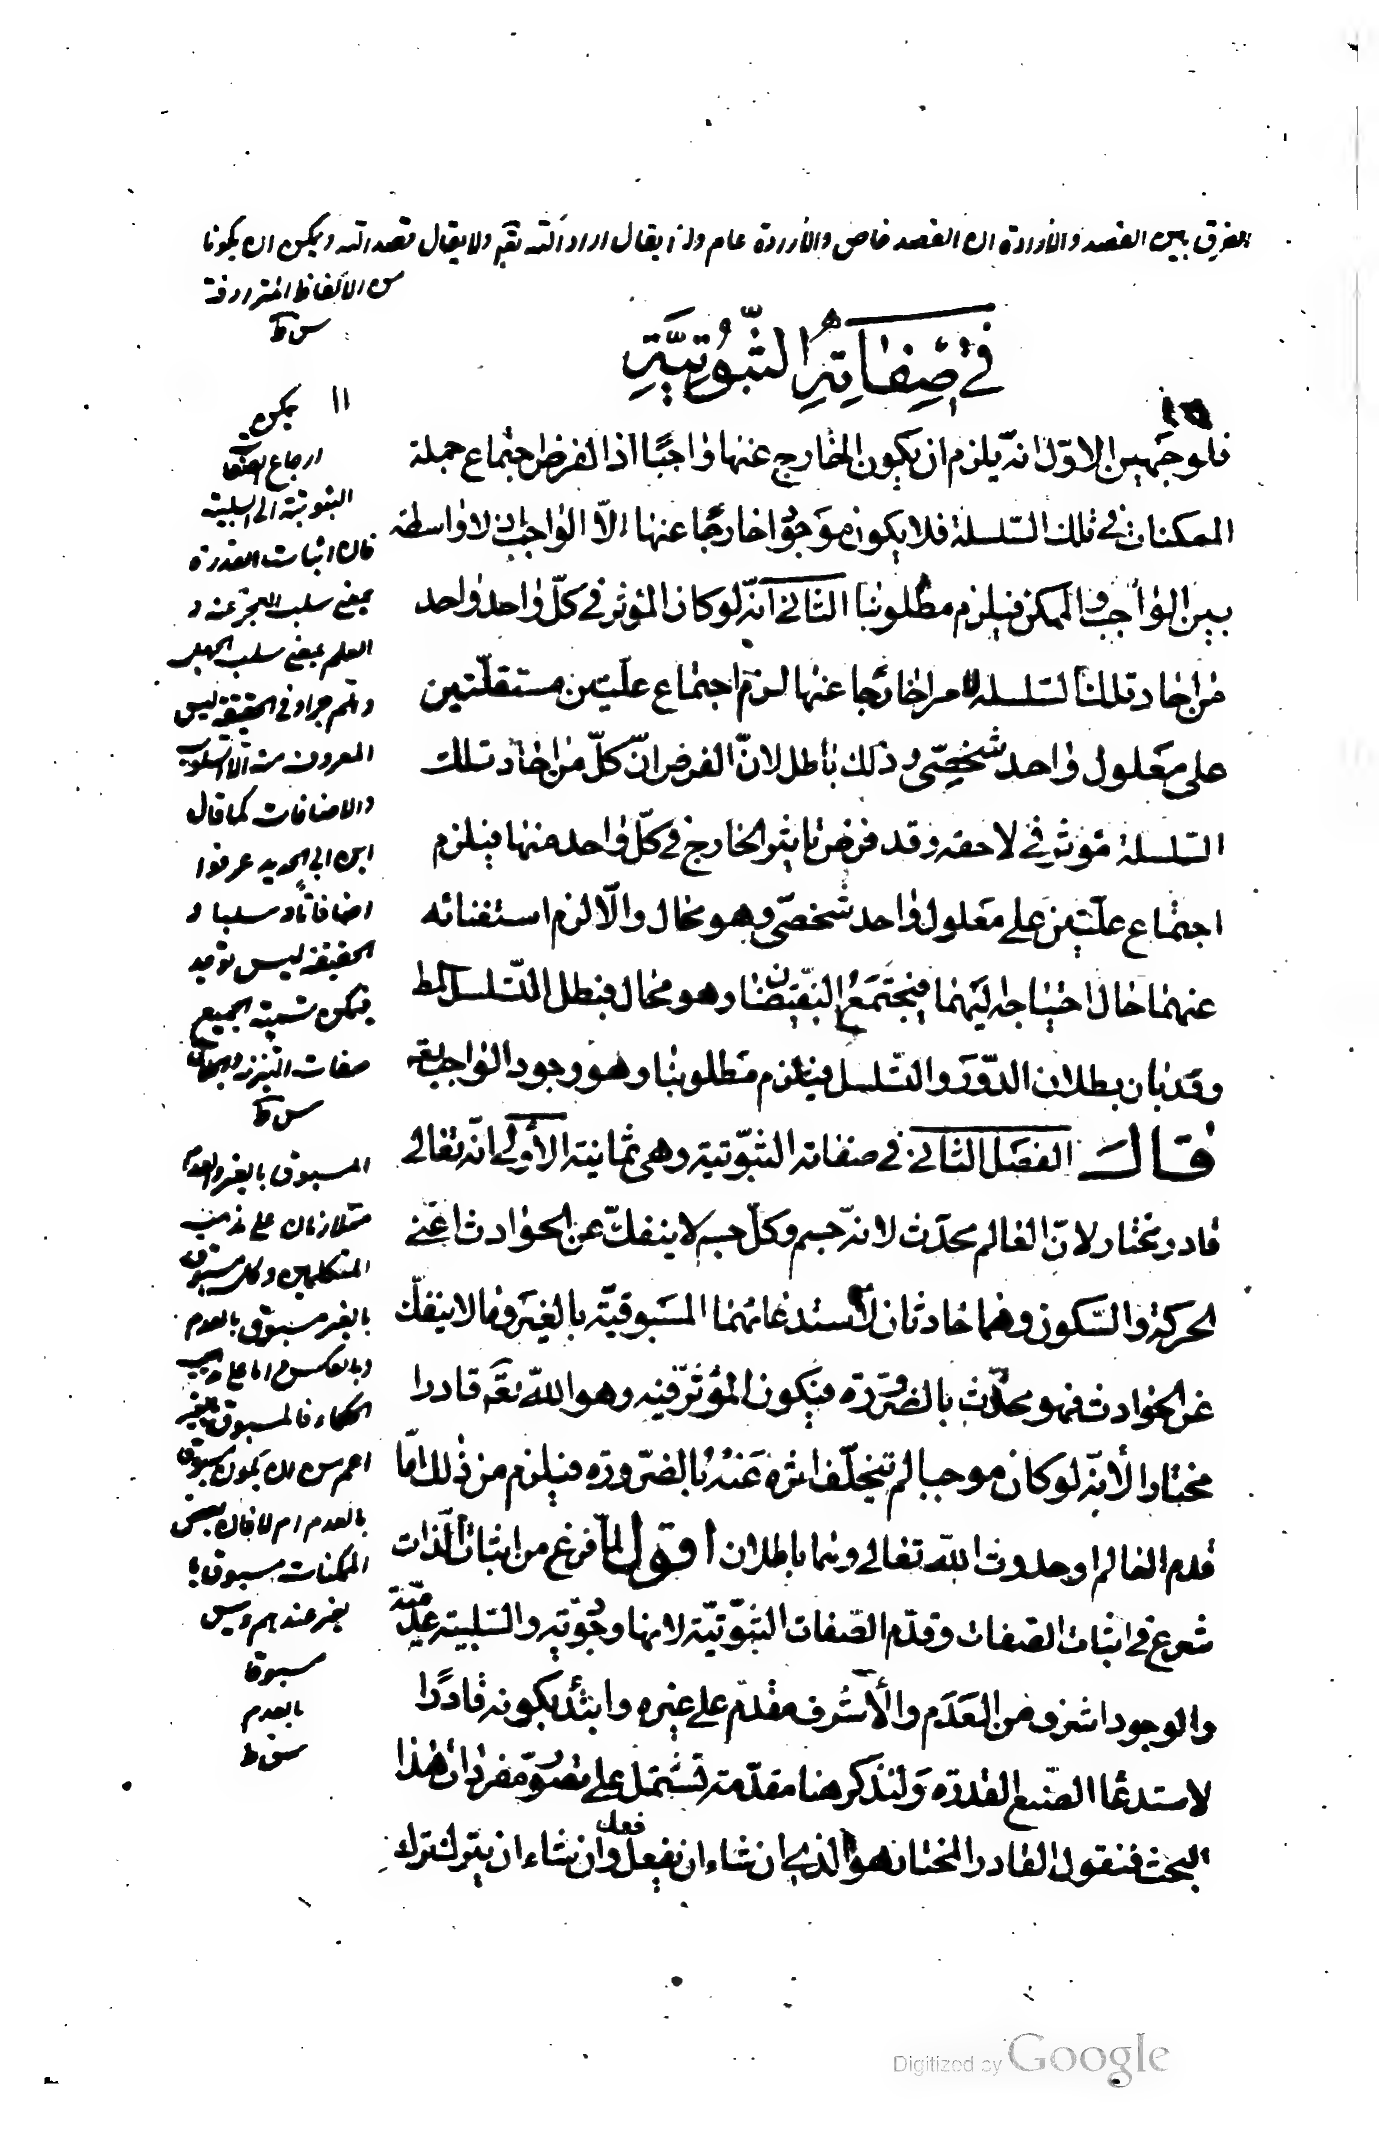 الفرق بين القصد والارادة ان القصد خاص والارادة عام ولذا يقال اراد الله تقم ولا يقال قصد الله ويمكن ان يكونا
من الالفاظ المترادفة
س ط
في صفاته الثبوتية
١١
فلوجهين الاوّل انه يلزم ان يكون الخارج عنها واجبا اذ الفرض اجتماع جملة
الممكنات في تلك السّلسلة فلا يكون موجودا خارجا عنها الّا الواجب اذ لا واسطه
بين الواجب والممكن فيلزم مطلوبنا الثاني انّه لو كان المؤثر في كلّ واحد واحد
من احاد تلك السّلسله امرا خارجا عنها لزم اجتماع علّتين مستقلّتين
على معلول واحد شخصّى وذلك باطل لانّ الفرض انّ كلّ من احاد تلك
السّلسلة مؤثر في لاحقه وقد فرض تاثير الخارج في كلّ واحد منها فيلزم
اجتماع علّتين على معلول واحد شخصّى وهو محال والّا لزم استغنائه
عنهما حال احتياجه اليهما فيجتمع النّقيضان وهو محال فبطل التّسلسل المط
وقد بان بطلان الدّور والتّسلسل فيلزم مطلوبنا وهو وجود الواجب تعم
قال الفصل الثاني في صفاته الثبّوتية وهى ثمانية الأولى انّه تعالى
قادر مختار لانّ العالم محدث لانّه جسم وكلّ جسم لا ينفكّ عن الحوادث اعنى
الحركة والسّكون وهما حادثان لاستدعائهما المسبوقيّة بالغير وما لا ينفكّ
عن الحوادث فهو محدث بالضّرورة فيكون المؤثّر فيه وهو اللّه تعم قادرا
مختارا لأنّه لو كان موجبا لم يتخلّف اثره عنه بالضّرورة فيلزم من ذلك امّا
قدم العالم او حدوث اللّه تعالى وهما باطلان اقول لمّا فرغ من اثبات الذّات
شرع في اثبات الصّفات وقدّم الصّفات الثبّوتيّة لانها وجوديّة والسّلبية عدميّة
والوجود اشرف من العدم والأشرف مقدّم على غيره وابتدأ بكونه قادرا
لاستدعا الصّنع القدرة ولنذكر هنا مقدّمة تشتمل على تصوّر مفردات هذا
البحث فنقول القادر المختار هو الذي ان شاء ان يفعل فعل وان شاء ان يترك ترك
يمكن
ارجاع الصفات
الثبوتية الى السلبية
فان اثبات القدرة
بمعنى سلب العجز عنه و
العلم بمعنى سلب الجهل
وهلم جرا وفي الحقيقة ليس
المعروف منه الا السلوب
والاضافات كما قال
ابن ابي الحديد عرفوا
اضافات وسلبا و
الحقيقة ليس توجد
فيمكن تسمية الجميع
صفات التنزيه والجلال
س ط
المسبوق بالغير والعدم
متلازمان على مذهب
المتكلمين وكل مسبوق
بالغير مسبوق بالعدم
وبالعكس واما على مذهب
الحكماء فالمسبوق بالغير
اعم من ان يكون مسبوقا
بالعدم ام لا فان بعض
الممكنات مسبوق
بغير عندهم وليس
مسبوقا
بالعدم
س ط
Digitized by Google